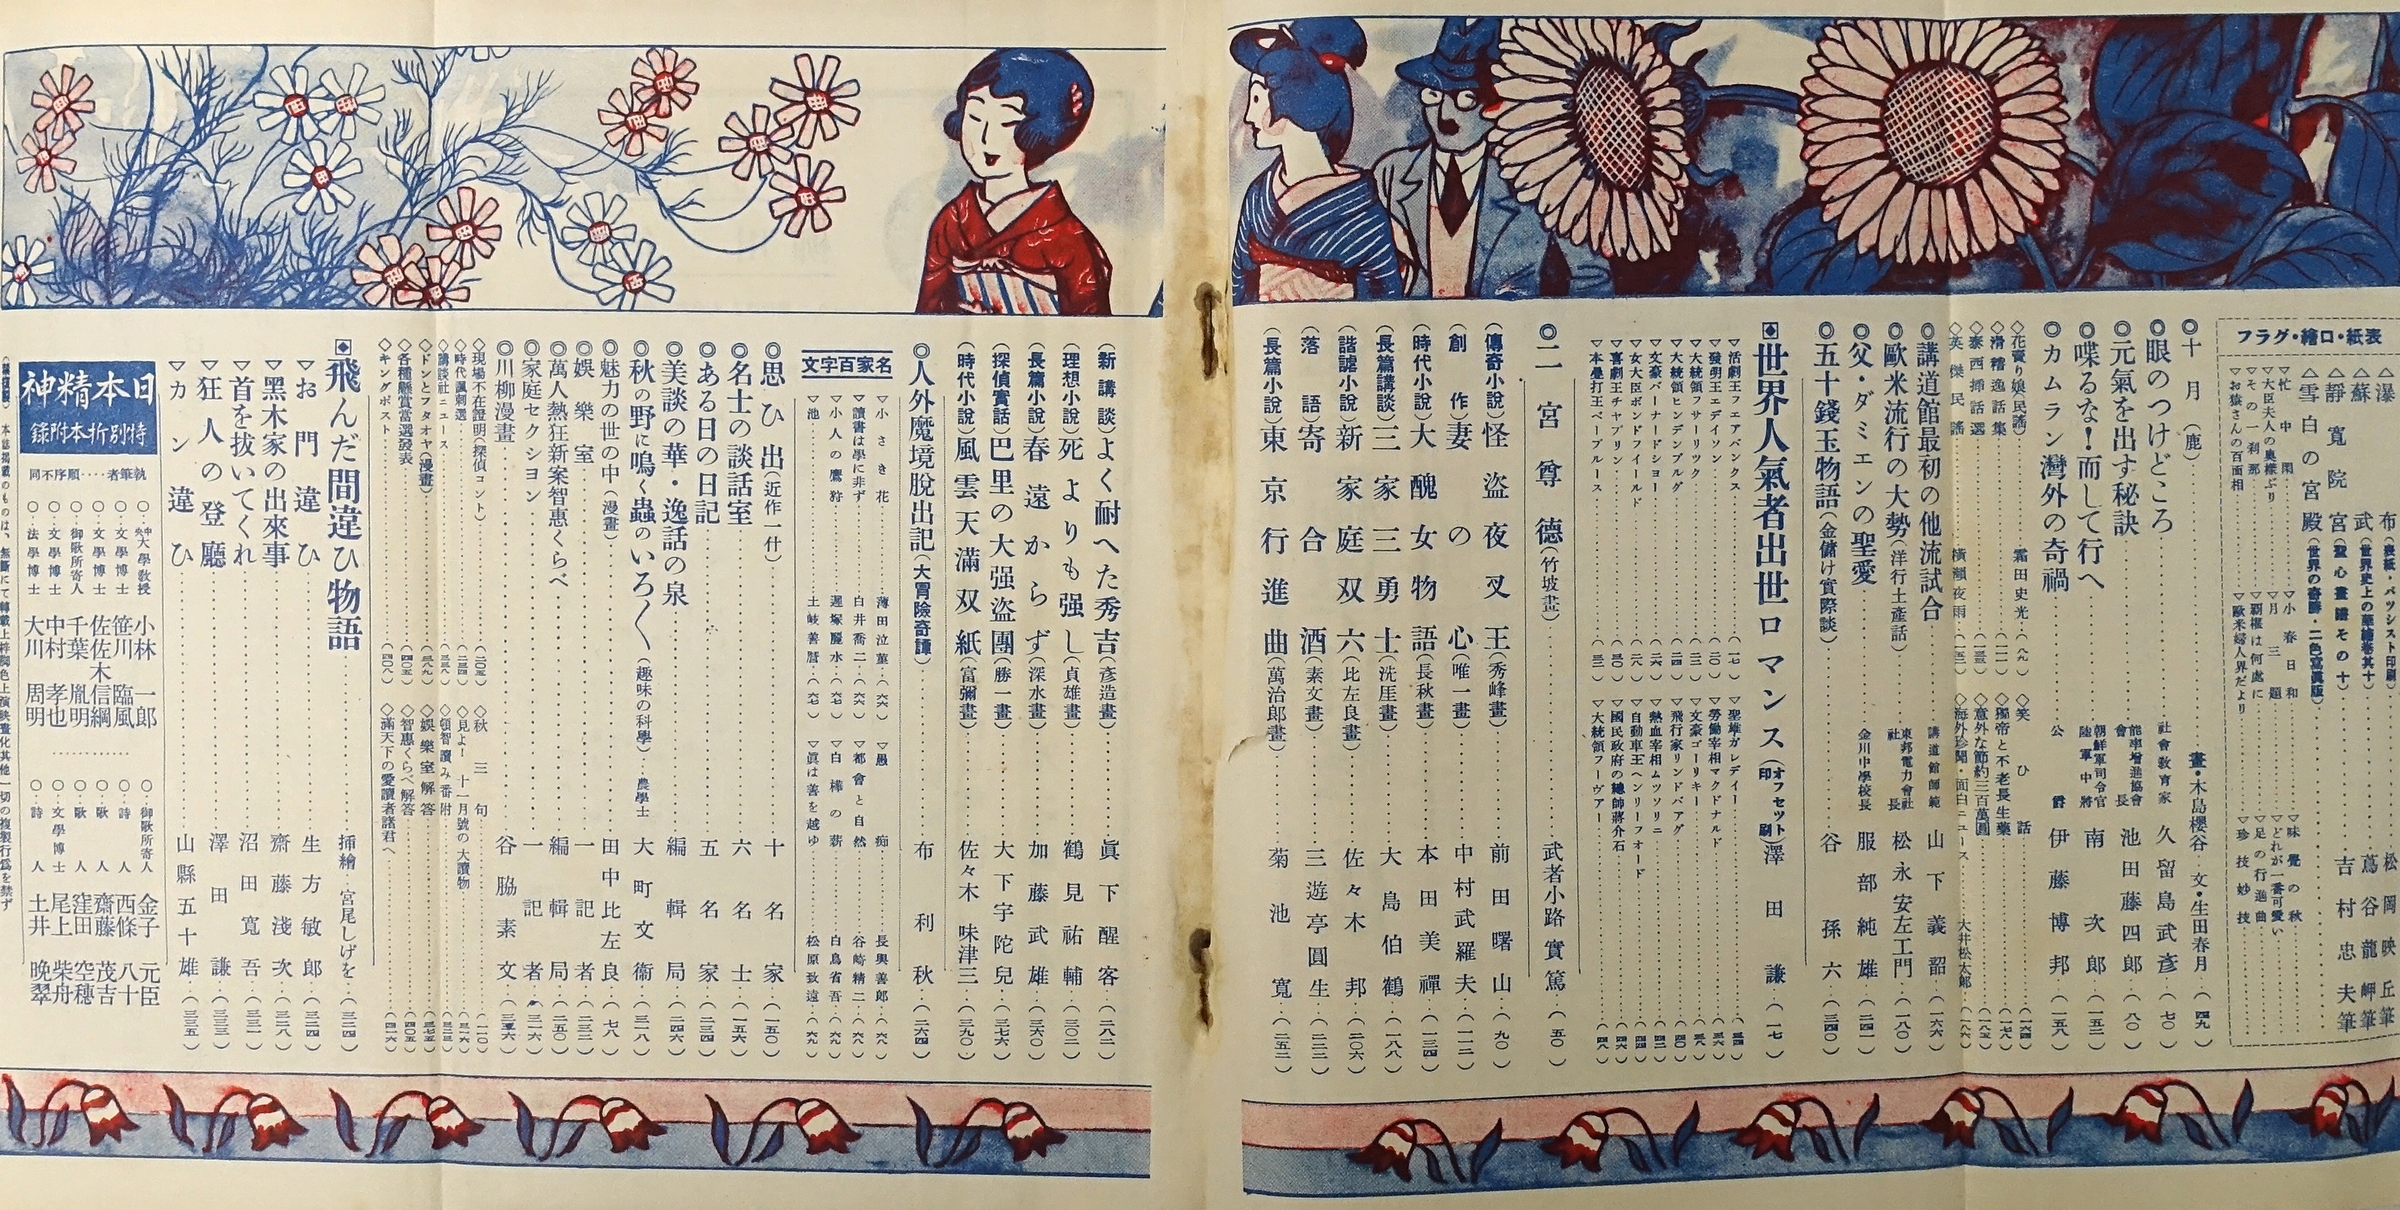 表紙・口繪・グラフ
△瀑布(表紙・パツシスト印刷)……松岡映丘筆
△蘇武(世界史上の華繪卷其十)……蔦谷龍岬筆
△靜寬院宮(聖心畫譜その十)……吉村忠夫筆
△雪白の宮殿(世界の奇勝・二色寫眞版)
▽忙中閑
▽大臣夫人の奥樣ぶり
▽その一刹那
▽お猿さんの百面相
▽小春日和
▽月三題
▽覇權は何處に
▽歐米婦人界だより
▽味覺の秋
▽どれが一番可愛い
▽足の行進曲
▽珍技妙技
◎十月(鹿)……畫・木島櫻谷 文・生田春月…(四九)
◎眼のつけどころ……社會教育家 久留島武彦…(七〇)
◎元氣を出す秘訣……能率增進協會會長 池田藤四郎…(八〇)
◎喋るな!而して行へ……朝鮮軍司令官陸軍中將 南次郎…(一五二)
◎カムラン灣外の奇禍……公爵 伊藤博邦…(一五八)
◇花賣り娘(民謠)……霜田史光…(八九)
◇滑稽逸話集……(一一一)
◇泰西挿話選……(一三三)
◇英傑民謠……横瀬夜雨…(一五一)
◇笑ひ話……(一六四)
◇獨帝と不老長生藥……(一七八)
◇意外な節約三百萬圓……(一八三)
◇海外珍聞・面白ニュース……大井松太郎…(一八六)
◎講道館最初の他流試合……講道館師範 山下義韶…(一六六)
◎歐米流行の大勢(洋行土產話)……東邦電力會社社長 松永安左工門…(一八〇)
◎父・ダミエンの聖愛……金川中學校長 服部純雄…(二四一)
◎五十錢玉物語(金儲け實際談)……谷孫六…(三四〇)
世界人氣者出世ロマンス(オフセツト印刷)…澤田謙…(一七)
▽活劇王フエアバンクス……(一七)
▽發明王エディソン……(二〇)
▽大統領フサーリツク……(二二)
▽大統領ヒンデンブルグ……(二四)
▽文豪バーナードショー……(二六)
▽女大臣ボンドフイールド……(二八)
▽喜劇王チャプリン……(三〇)
▽本壘打王ベーブルース……(三二)
▽聖雄ガンデイー……(三四)
▽勞働宰相マクドナルド……(三六)
▽文豪ゴーリキー……(三八)
▽飛行家リンドバアグ……(四〇)
▽熱血宰相ムツソリニ……(四二)
▽自動車王ヘンリーフオード……(四四)
▽國民政府の總帥蔣介石……(四六)
▽大統領フーヴアー……(四八)
◎二宮尊德(竹坡畫)……武者小路實篤…(五〇)
(傳奇小說)怪盜夜叉王(秀峰畫)……前田曙山…(九〇)
(創作)妻の心(唯一畫)……中村武羅夫…(一一二)
(時代小說)大醜女物語(長秋畫)……本田美禪…(一三四)
(長篇講談)三家三勇士(洗厓畫)……大島伯鶴…(一八八)
(諧謔小說)新家庭双六(比左良畫)……佐々木邦…(二〇六)
(落語)寄合酒(素文畫)……三遊亭圓生…(二二二)
(長篇小說)東京行進曲(萬治郎畫)……菊池寬…(二五二)
(新講談)よく耐へた秀吉(彦造畫)……眞下醒客…(二八二)
(理想小說)死よりも强し(貞雄畫)……鶴見祐輔…(三〇二)
(長篇小說)春遠からず(深水畫)……加藤武雄…(三六〇)
(探偵實話)巴里の大强盜團(勝一畫)……大下宇陀兒…(三七六)
(時代小說)風雲天滿双紙(富彌畫)……佐々木味津三…(三九〇)
◎人外魔境脫出記(大冒險奇譚)……布利秋…(二六四)
名家百家文字
▽小さき花……薄田泣菫…(六六)
▽讀書は學に非ず……白井喬二…(六六)
▽小人の鷹狩……遲塚麗水…(六七)
▽池……土岐善麿…(六七)
▽愚痴……長與善郎…(六八)
▽都會と自然……谷崎精二…(六八)
▽白樺の薪……白鳥省吾…(六九)
▽眞は善を越ゆ……松原致遠…(六九)
◎思ひ出(近作一什)……十名家…(一五〇)
◎名士の談話室……六名士…(一五六)
◎ある日の日記……五名家…(二三四)
◎美談の華・逸話の泉……編輯局…(二四六)
◎秋の野に鳴く蟲のいろ〱(趣味の科學)…農學士 大町文衞…(三一八)
◎魅力の世の中(漫畫)……田中比左良…(七八)
◎娛樂室……一記者…(二三二)
◎萬人熱狂新案智惠くらべ……編輯局…(二五〇)
◎家庭セクション……一記者…(三一六)
◎川柳漫畫……谷脇素文…(三五六)
◇現場不在證明(探偵コント)……(二〇五)
◇時代諷刺選……(二三四)
◇講談社ニュース……(三三八)
◇ドンとフタオヤ(漫畫)……(三八九)
◇各種懸賞當選發表……(四〇五)
◇キングポスト……(四〇八)
◇秋三句……(一一〇)
◇見よ!十一月號の大讀物……(三一六)
◇頓智讀み番附……(三三三)
◇娛樂室解答……(三七五)
◇智惠くらべ解答……(四〇五)
◇滿天下の愛讀者諸君へ……(四一六)
飛んだ間違ひ物語……挿繪・宮尾しげを…(三二四)
▽お門違ひ……生方敏郎…(三二四)
▽黑木家の出來事……齋藤淺次…(三二八)
▽首を拔いてくれ……沼田寬吾…(三三一)
▽狂人の登廳……澤田謙…(三三三)
▽カン違ひ……山縣五十雄…(三三五)
日本精神
特別折本附錄
執筆者‥‥順序不同
○中央大學教授 小林一郎
○文學博士 笹川臨風
○文學博士 佐佐木信綱
○御歌所寄人 千葉胤明
○文學博士 中村孝也
○法學博士 大川周明
○御歌所寄人 金子元臣
○詩人 西條八十
○歌人 齋藤茂吉
○歌人 窪田空穗
○文學博士 尾上柴舟
○詩人 土井晩翠
(禁複製) 本誌揭載のものは、無斷にて轉載上梓脚色上演映畫化其他一切の複製行爲を禁ず